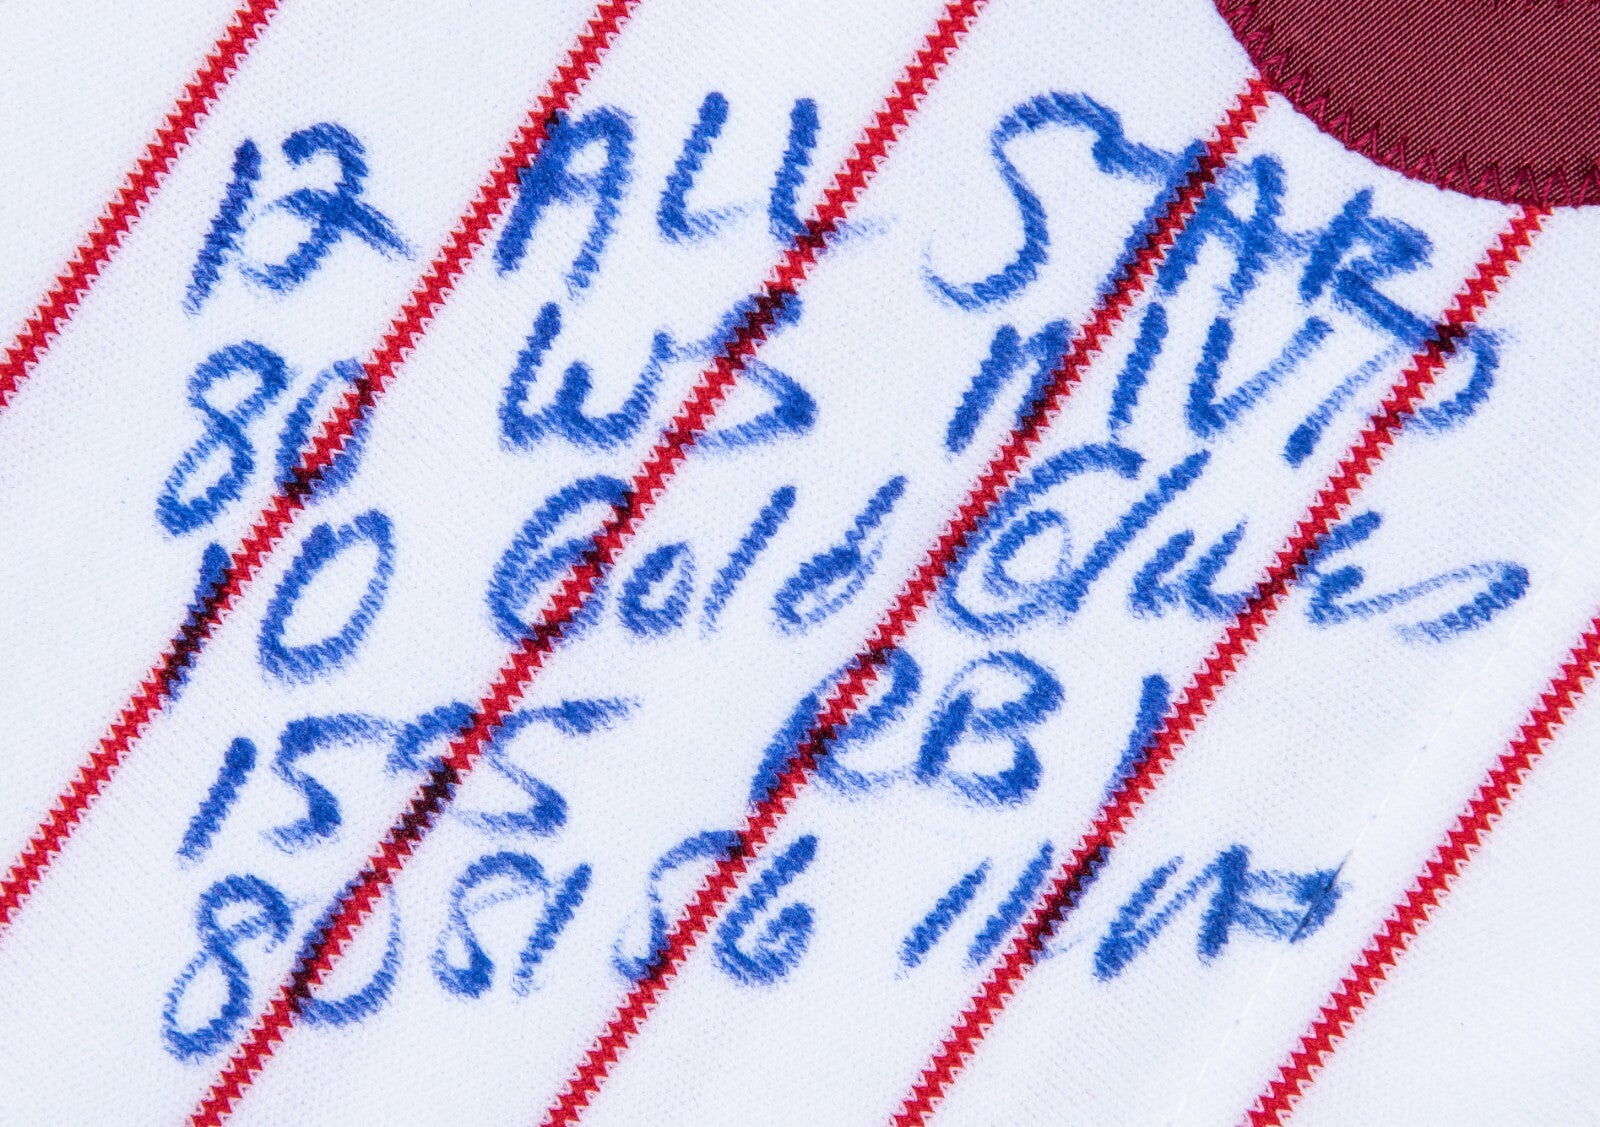 12 ALL STAR
80 WS MVP
10 Gold Gloves
1595 RBI
80 81 86 MVP